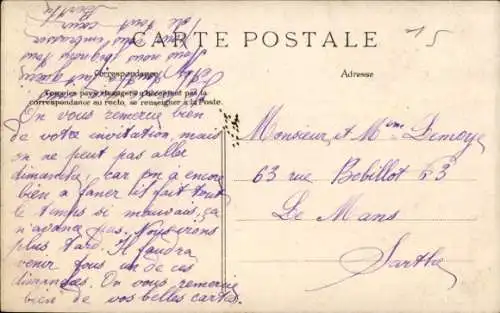 CARTE POSTALE
15
Correspondance
Adresse
Tous les pays étrangers n'acceptent pas la
correspondance au recto, se renseigner à la Poste.
On vous remercie bien
de votre invitation, mais
on ne peut pas aller
dimanche, car on a encore
bien à faner il fait tout
le temps si mauvais, ça
n'avance pas. Nous irons
plus tard. Il faudra
venir tous un de ces
dimanches. On vous remercie
bien de vos belles cartes.
Monsieur et Mme Lemoyne
63 rue Bobillot 63
Le Mans
Sarthe